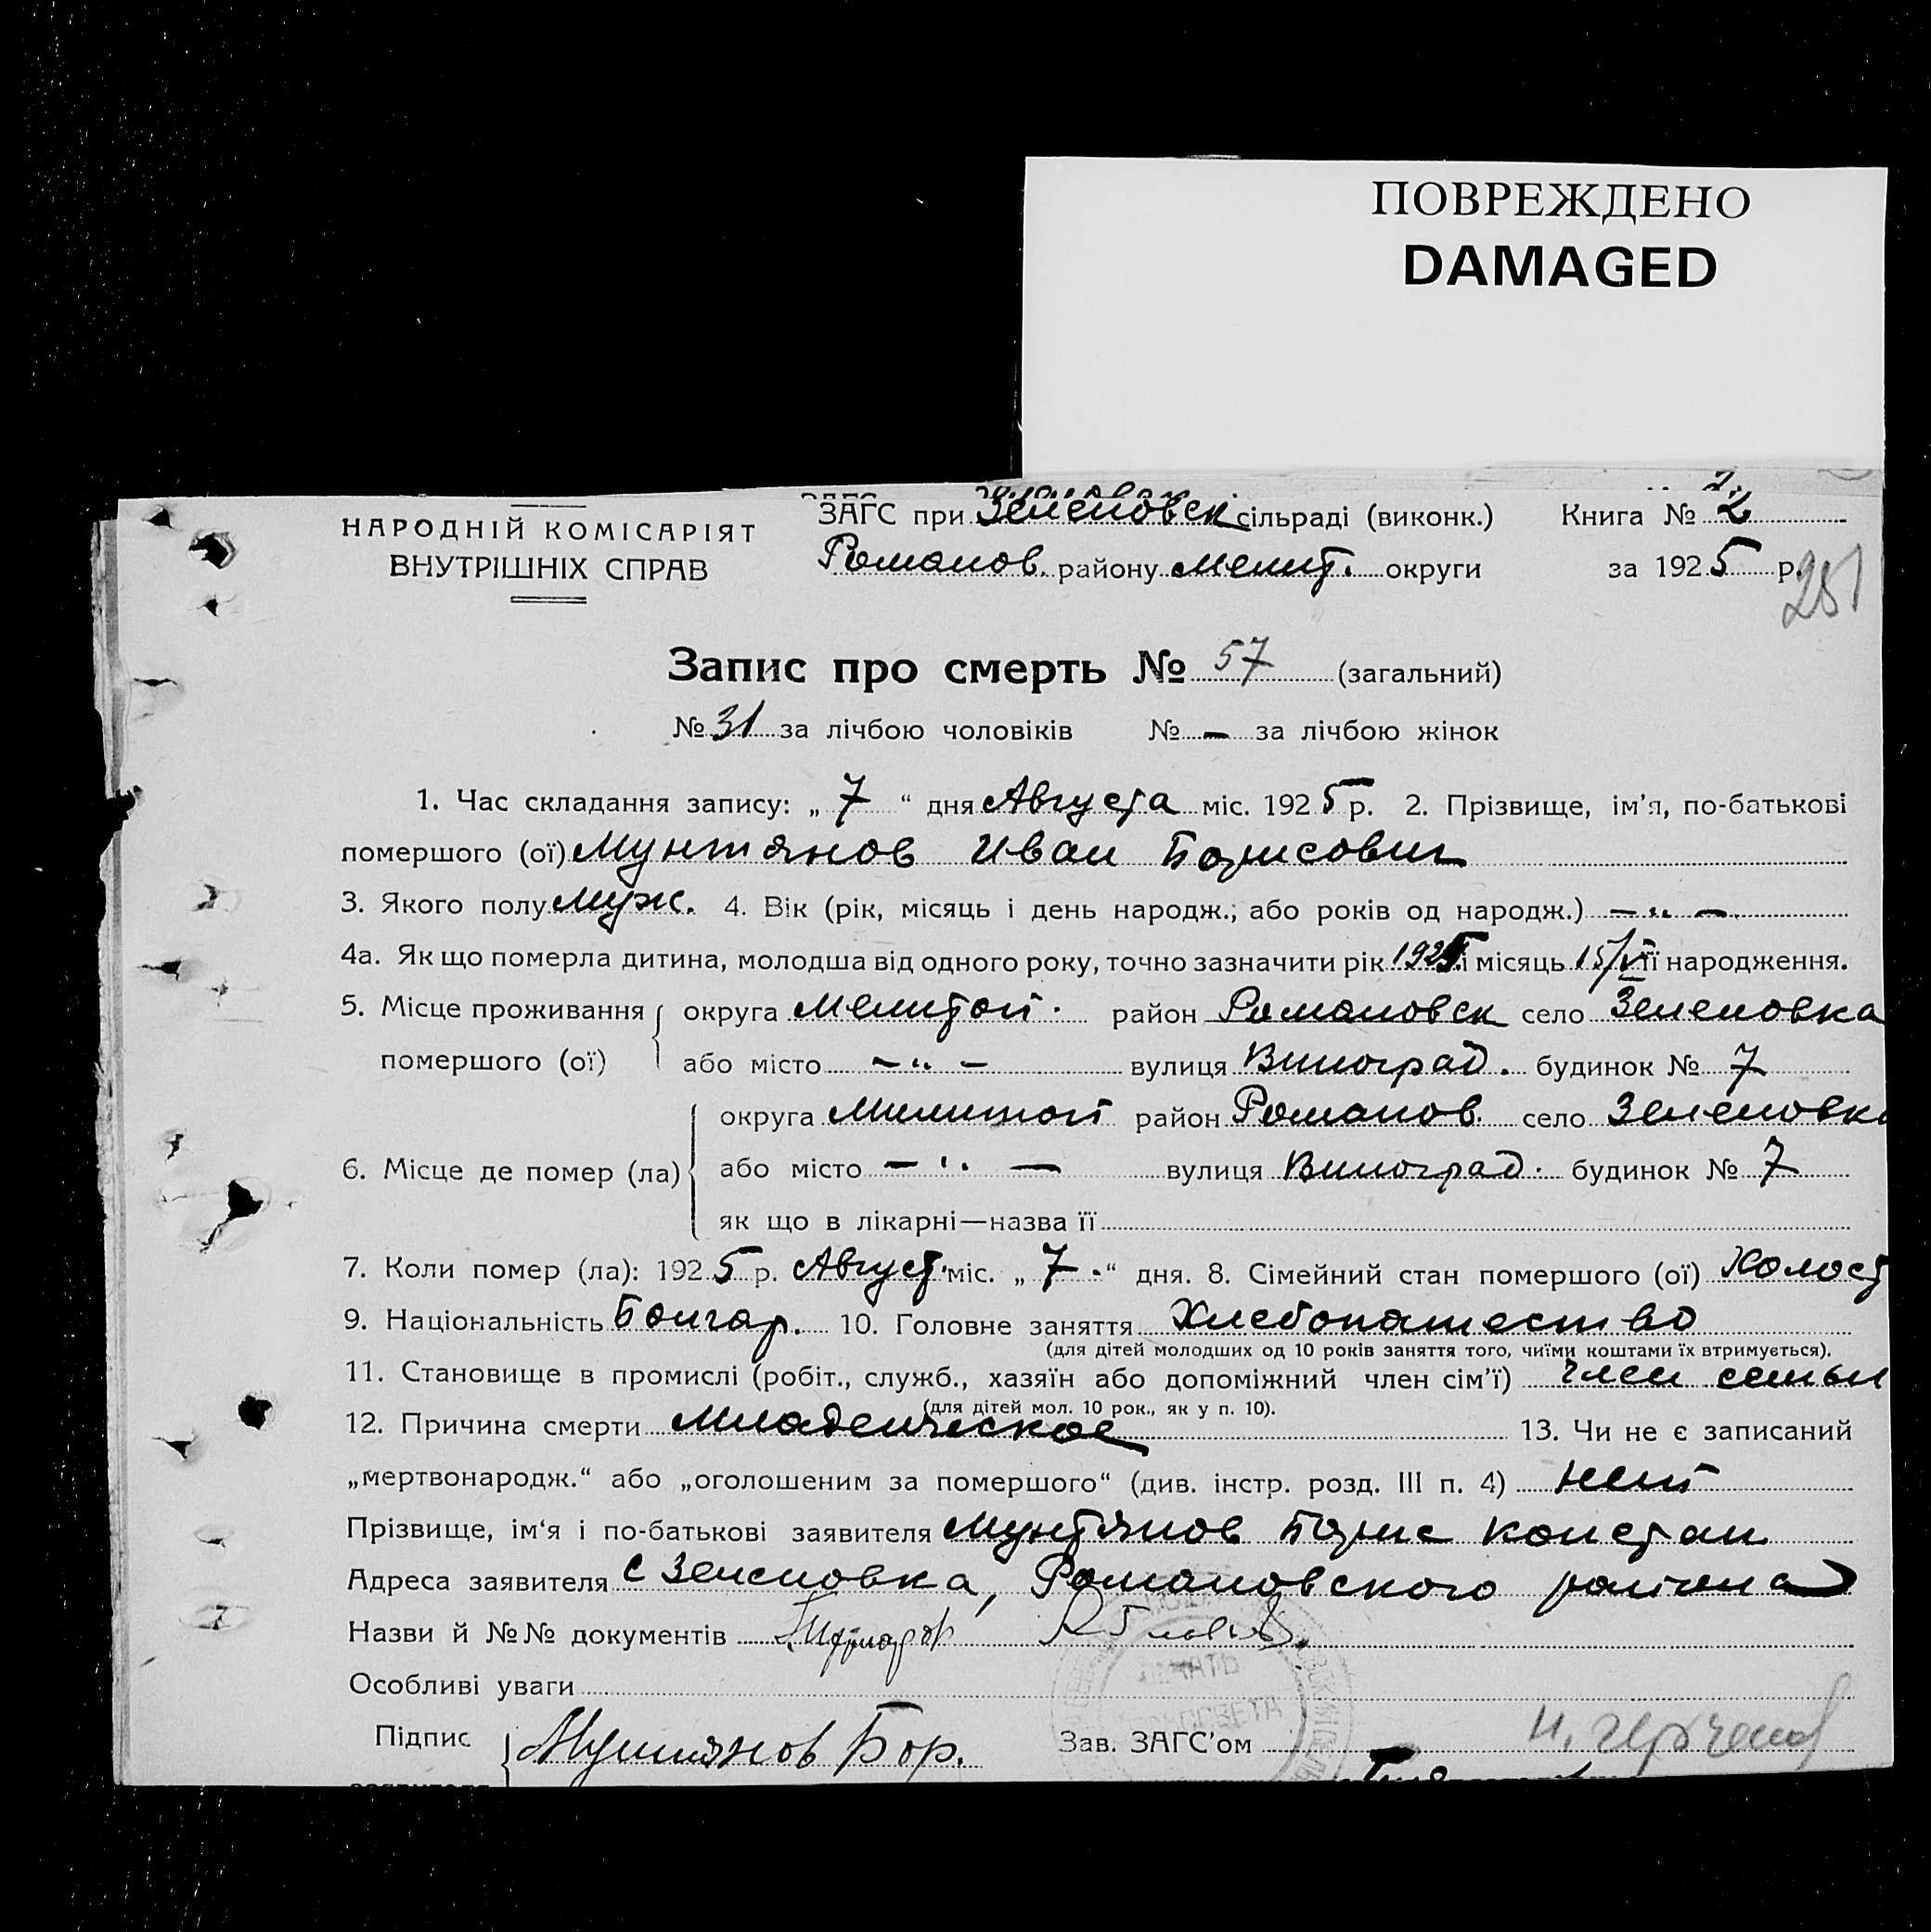 ПОВРЕЖДЕНО
DAMAGED
НАРОДНІЙ КОМІСАРІЯТ
ВНУТРІШНІХ СПРАВ
ЗАГС при Зеленовск сільраді (виконк.) Книга № 2
Романов. району Мелит. округи за 1925 р.
251
Запис про смерть № 57 (загальний)
№ 31 за лічбою чоловіків № — за лічбою жінок
1. Час складання запису: „ 7 “ дня Августа міс. 1925 р. 2. Прізвище, ім'я, по-батькові
помершого (ої) Мунтянов Иван Борисович
3. Якого полу муж. 4. Вік (рік, місяць і день народж., або років од народж.) — „ —
4а. Як що померла дитина, молодша від одного року, точно зазначити рік 1925 і місяць 15/V її народження.
5. Місце проживання округа Мелитоп. район Романовск село Зеленовка
помершого (ої) або місто — „ — вулиця Виноград. будинок № 7
округа Милитоп район Романов. село Зеленовка
6. Місце де помер (ла) або місто — „ — вулиця Виноград. будинок № 7
як що в лікарні—назва її
7. Коли помер (ла): 1925 р. Август. міс. „ 7 .“ дня. 8. Сімейний стан помершого (ої) Холост
9. Національність Болгар. 10. Головне заняття Хлебопашество
(для дітей молодших од 10 років заняття того, чиїми коштами їх втримується).
11. Становище в промислі (робіт., служб., хазяїн або допоміжний член сім'ї) член семьи
(для дітей мол. 10 рок., як у п. 10).
12. Причина смерти Младенческое 13. Чи не є записаний
„мертвонародж.“ або „оголошеним за помершого“ (див. інстр. розд. III п. 4) нет
Прізвище, ім‘я і по-батькові заявителя Мунтянов Борис Констан
Адреса заявителя с Зеленовка, Романовского района
Назви й №№ документів
Особливі уваги
ПЕЧАТЬ
Підпис Мунтянов Бор. Зав. ЗАГС'ом
заявителя